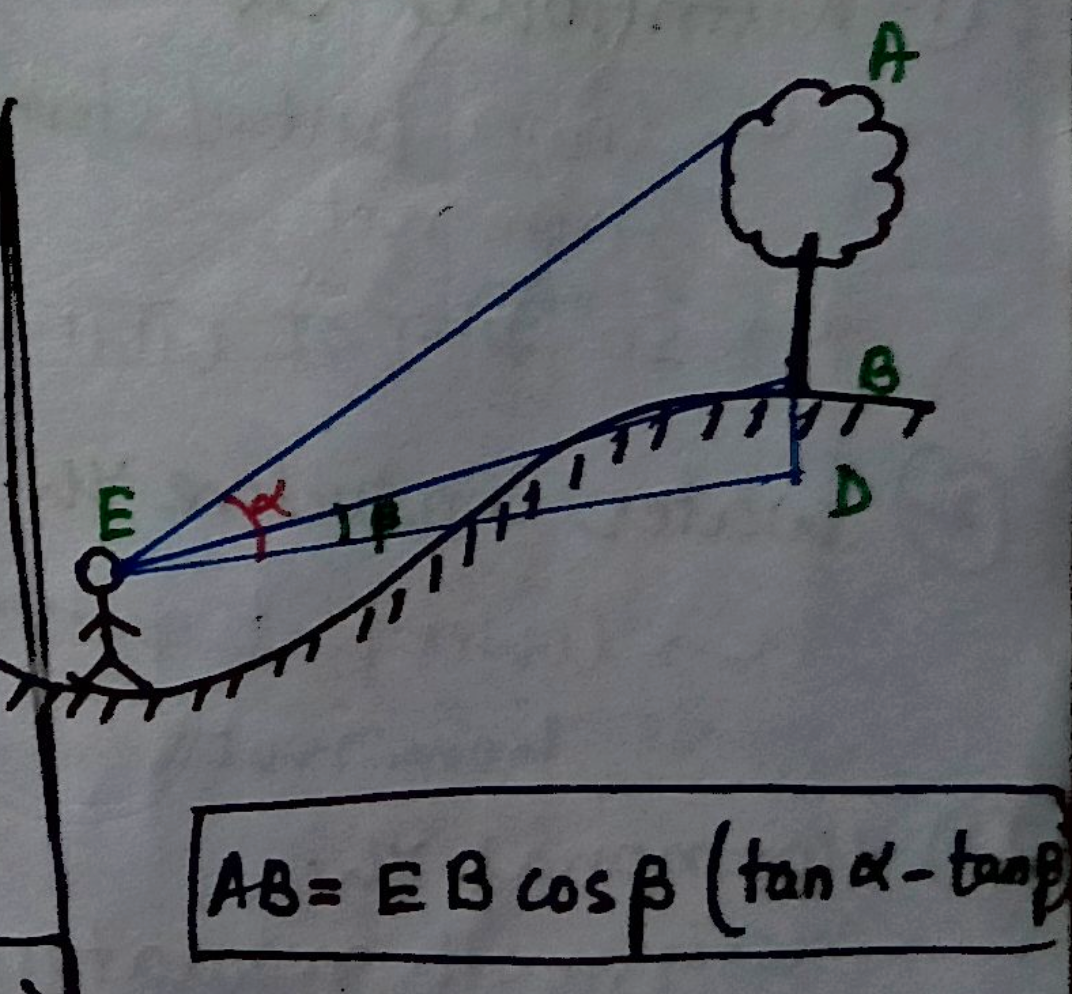 A
B
E
α
β
D
AB = EB cosβ (tanα - tanβ